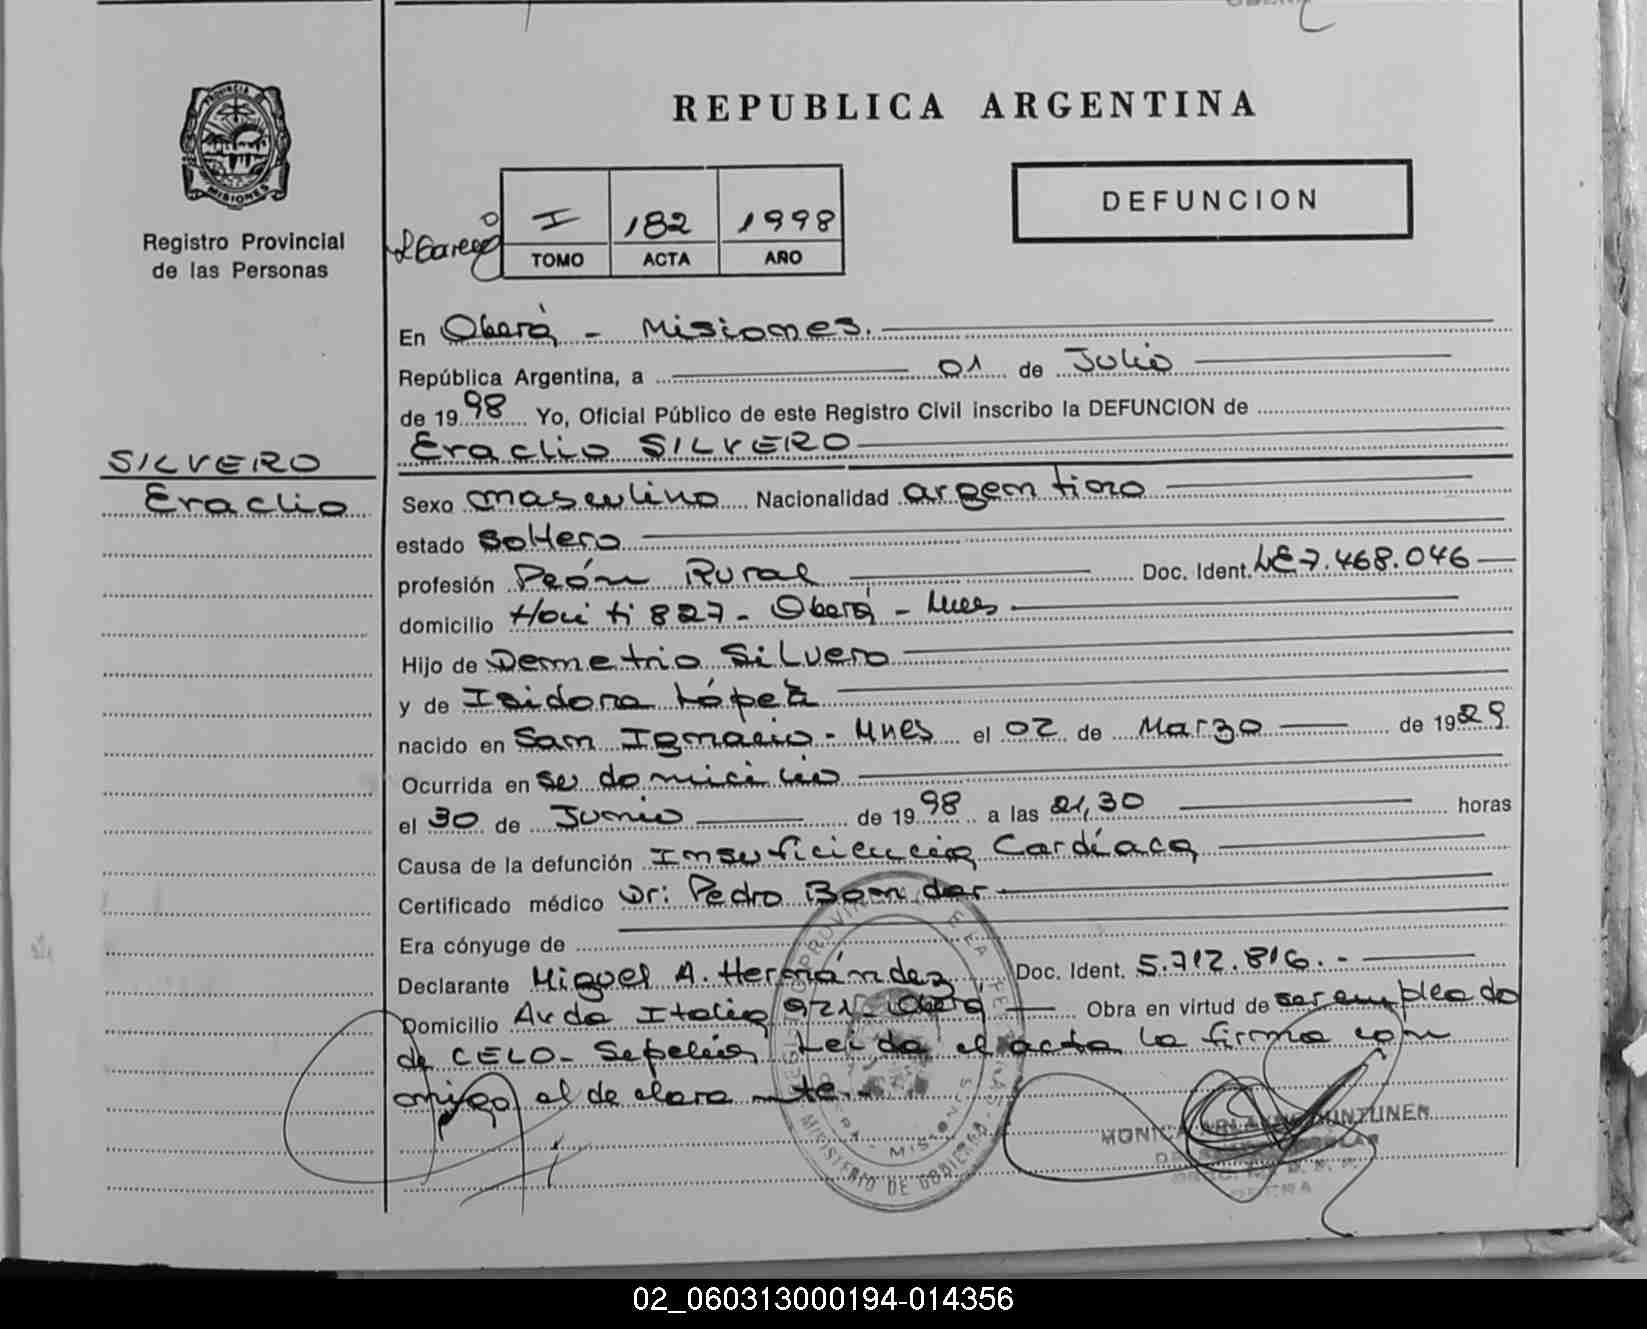 REPUBLICA ARGENTINA
PROVINCIA DE
MISIONES
Registro Provincial
de las Personas
I 182 1998
TOMO ACTA AÑO
DEFUNCION
En Oberá - Misiones.
República Argentina, a 01 de Julio
de 1998 Yo, Oficial Público de este Registro Civil inscribo la DEFUNCION de
Eraclio SILVERO
SILVERO
Eraclio
Sexo masculino Nacionalidad argentino
estado soltero
profesión Peón Rural Doc. Ident. LE 7.468.046
domicilio Haití 827 - Oberá - Mnes
Hijo de Demetrio Silvero
y de Isidora López
nacido en San Ignacio - Mnes el 02 de Marzo de 1929
Ocurrida en su domicilio
el 30 de Junio de 1998 a las 21,30 horas
Causa de la defunción Insuficiencia Cardíaca
Certificado médico Dr: Pedro Bondar
Era cónyuge de
Declarante Miguel A. Hernández Doc. Ident. 5.712.816.-
Domicilio Avda Italia 921 - Oberá Obra en virtud de ser empleado
de CELO - Sepelios Leída el acta la firma con
migo el declara nte.-
MINISTERIO DE GOBIERNO
MISIONES
MONICA
02_060313000194-014356